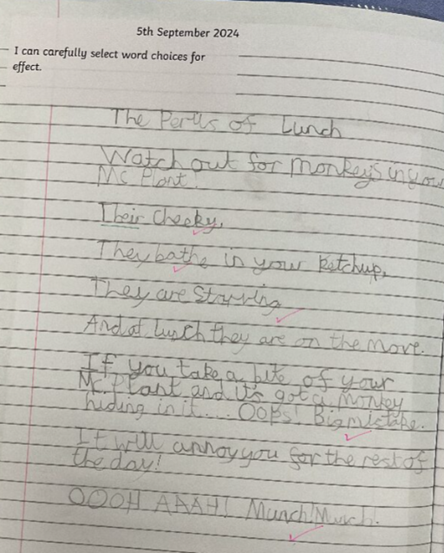 5th September 2024
I can carefully select word choices for
effect.
The Perils of Lunch
Watch out for monkeys in your
Mc Plant!
Their cheeky,
They bathe in your ketchup,
They are Starving
And at lunch they are on the move.
If you take a bite of your
Mc Plant and its got a monkey
hiding in it.... OOPS! Big mistake.
It will annoy you for the rest of
the day!
OOOH AAAH! Munch!Munch!